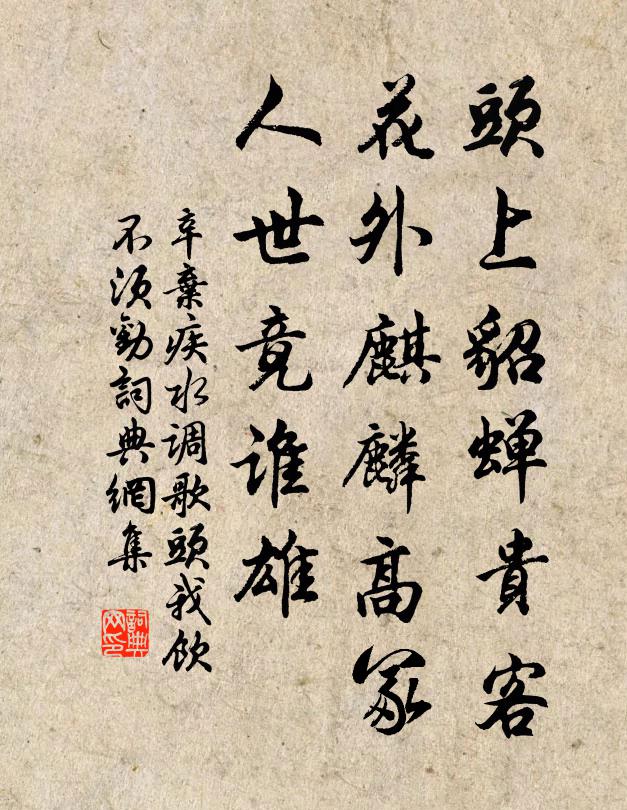 頭上貂蟬貴客
花外麒麟高冢
人世竟誰雄
辛棄疾水调歌頭我飲
不須勸詞典網集
詞典
网印